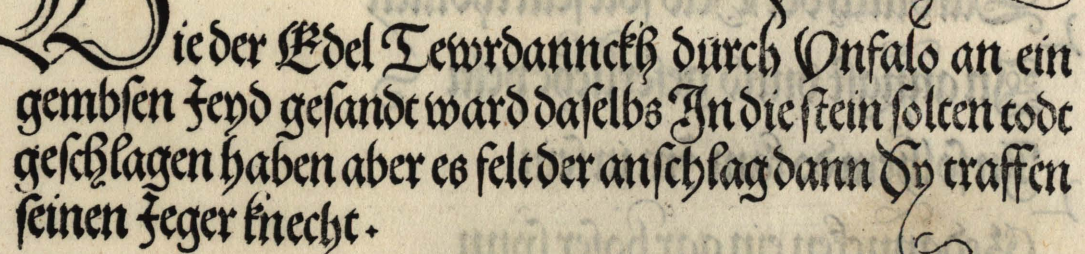 Wie der Edel Tewrdannckh durch Vnfalo an ein
gembsen Jeyd gesandt ward daselbs In die stein solten todt
geschlagen haben aber es felt der anschlag dann Sy traffen
seinen Jeger knecht.